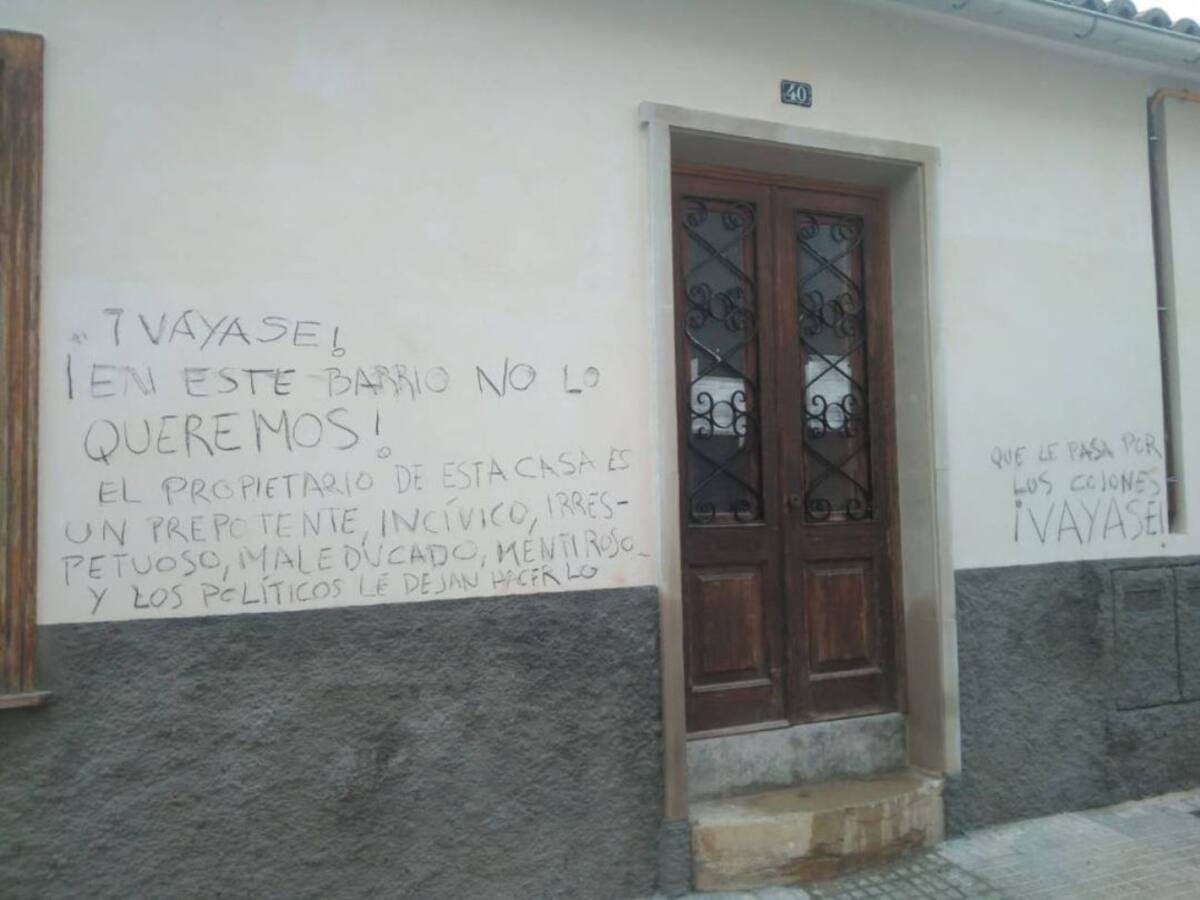 ¡VÁYASE!
¡EN ESTE BARRIO NO LO
QUEREMOS!
EL PROPIETARIO DE ESTA CASA ES
UN PREPOTENTE, INCÍVICO, IRRES-
PETUOSO, MALEDUCADO, MENTIROSO
Y LOS POLÍTICOS LE DEJAN HACERLO
40
QUE LE PASA POR
LOS COJONES
¡VAYASE!